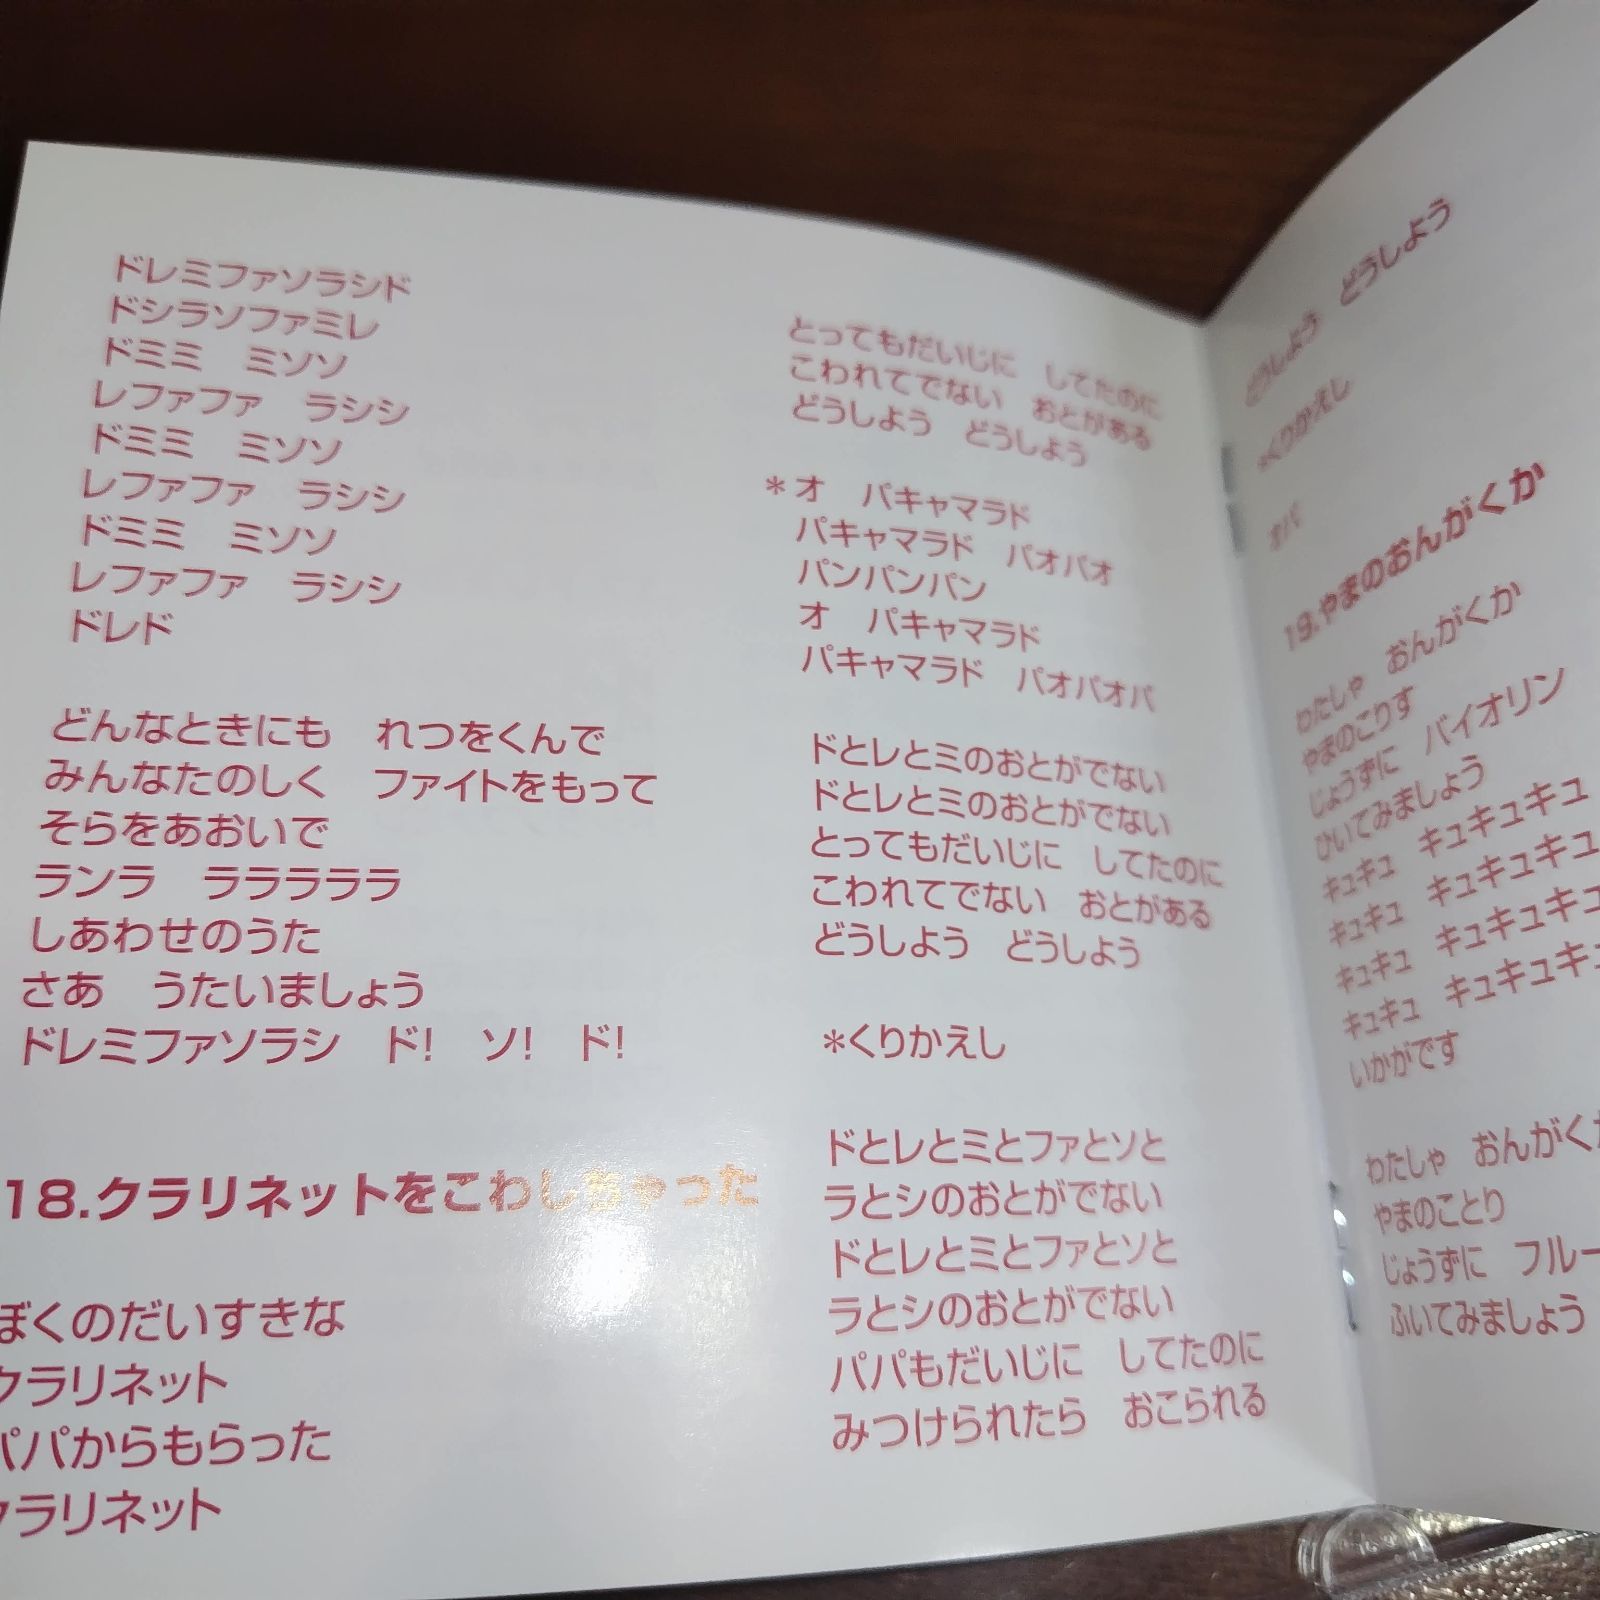 ドレミファソラシド
ドシラソファミレ
ドミミ　ミソソ
レファファ　ラシシ
ドミミ　ミソソ
レファファ　ラシシ
ドミミ　ミソソ
レファファ　ラシシ
ドレド
どんなときにも　れつをくんで
みんなたのしく　ファイトをもって
そらをあおいで
ランラ　ラララララ
しあわせのうた
さあ　うたいましょう
ドレミファソラシ　ド!　ソ!　ド!
18.クラリネットをこわしちゃった
ぼくのだいすきな
クラリネット
パパからもらった
クラリネット
とってもだいじに　してたのに
こわれてでない　おとがある
どうしよう　どうしよう
＊オ　パキャマラド
パキャマラド　パオパオ
パンパンパン
オ　パキャマラド
パキャマラド　パオパオパ
ドとレとミのおとがでない
ドとレとミのおとがでない
とってもだいじに　してたのに
こわれてでない　おとがある
どうしよう　どうしよう
＊くりかえし
ドとレとミとファとソと
ラとシのおとがでない
ドとレとミとファとソと
ラとシのおとがでない
パパもだいじに　してたのに
みつけられたら　おこられる
どうしよう　どうしよう
＊くりかえし
オパ
19.やまのおんがくか
わたしゃ　おんがくか
やまのこりす
じょうずに　バイオリン
ひいてみましょう
キュキュ　キュキュキュ
キュキュ　キュキュキュ
キュキュ　キュキュキュ
キュキュ　キュキュキュ
いかがです
わたしゃ　おんがくか
やまのことり
じょうずに　フルー
ふいてみましょう